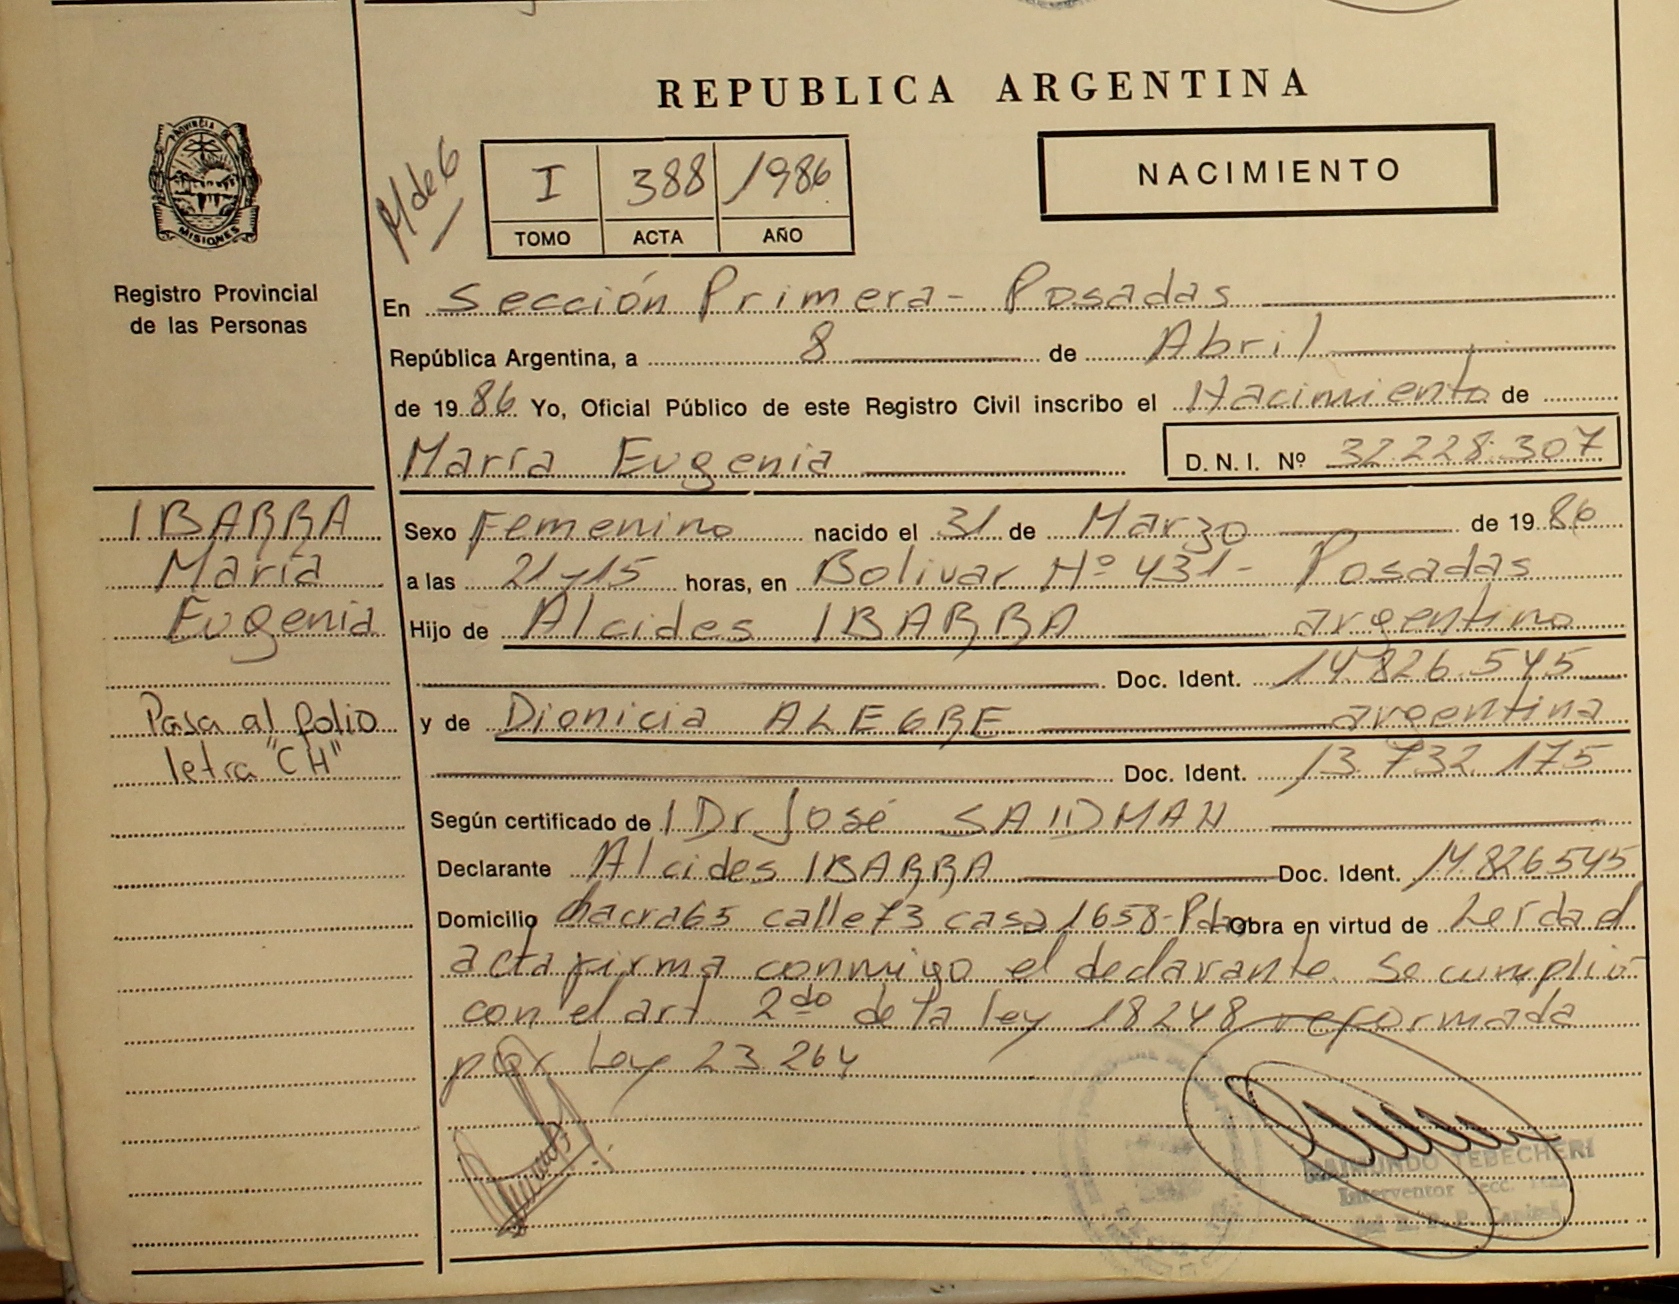 REPUBLICA ARGENTINA
PROVINCIA DE
MISIONES
Registro Provincial
de las Personas
I 388 1986
TOMO ACTA AÑO
NACIMIENTO
En Sección Primera - Posadas
República Argentina, a 8 de Abril
de 1986 Yo, Oficial Público de este Registro Civil inscribo el Nacimiento de
María Eugenia D. N. I. Nº 32.228.307
IBARRA
María
Eugenia
Pasa al folio
letra "CH"
Sexo Femenino nacido el 31 de Marzo de 1986
a las 21 y 15 horas, en Bolivar Nº 431- Posadas
Hijo de Alcides IBARRA argentino
Doc. Ident. 14.826.545
y de Dionicia ALEGRE argentina
Doc. Ident. 13.732.175
Según certificado de Dr José SAIDMAN
Declarante Alcides IBARRA Doc. Ident. 14.826545
Domicilio chacra 65 calle 73 casa 1658- Pdas Obra en virtud de Lerda el
acta firma conmigo el declarante. Se cumplió
con el art. 2do de la ley 18248 reformada
por Ley 23264
RAIMUNDO TEBECHERI
Interventor Secc. 1ra.